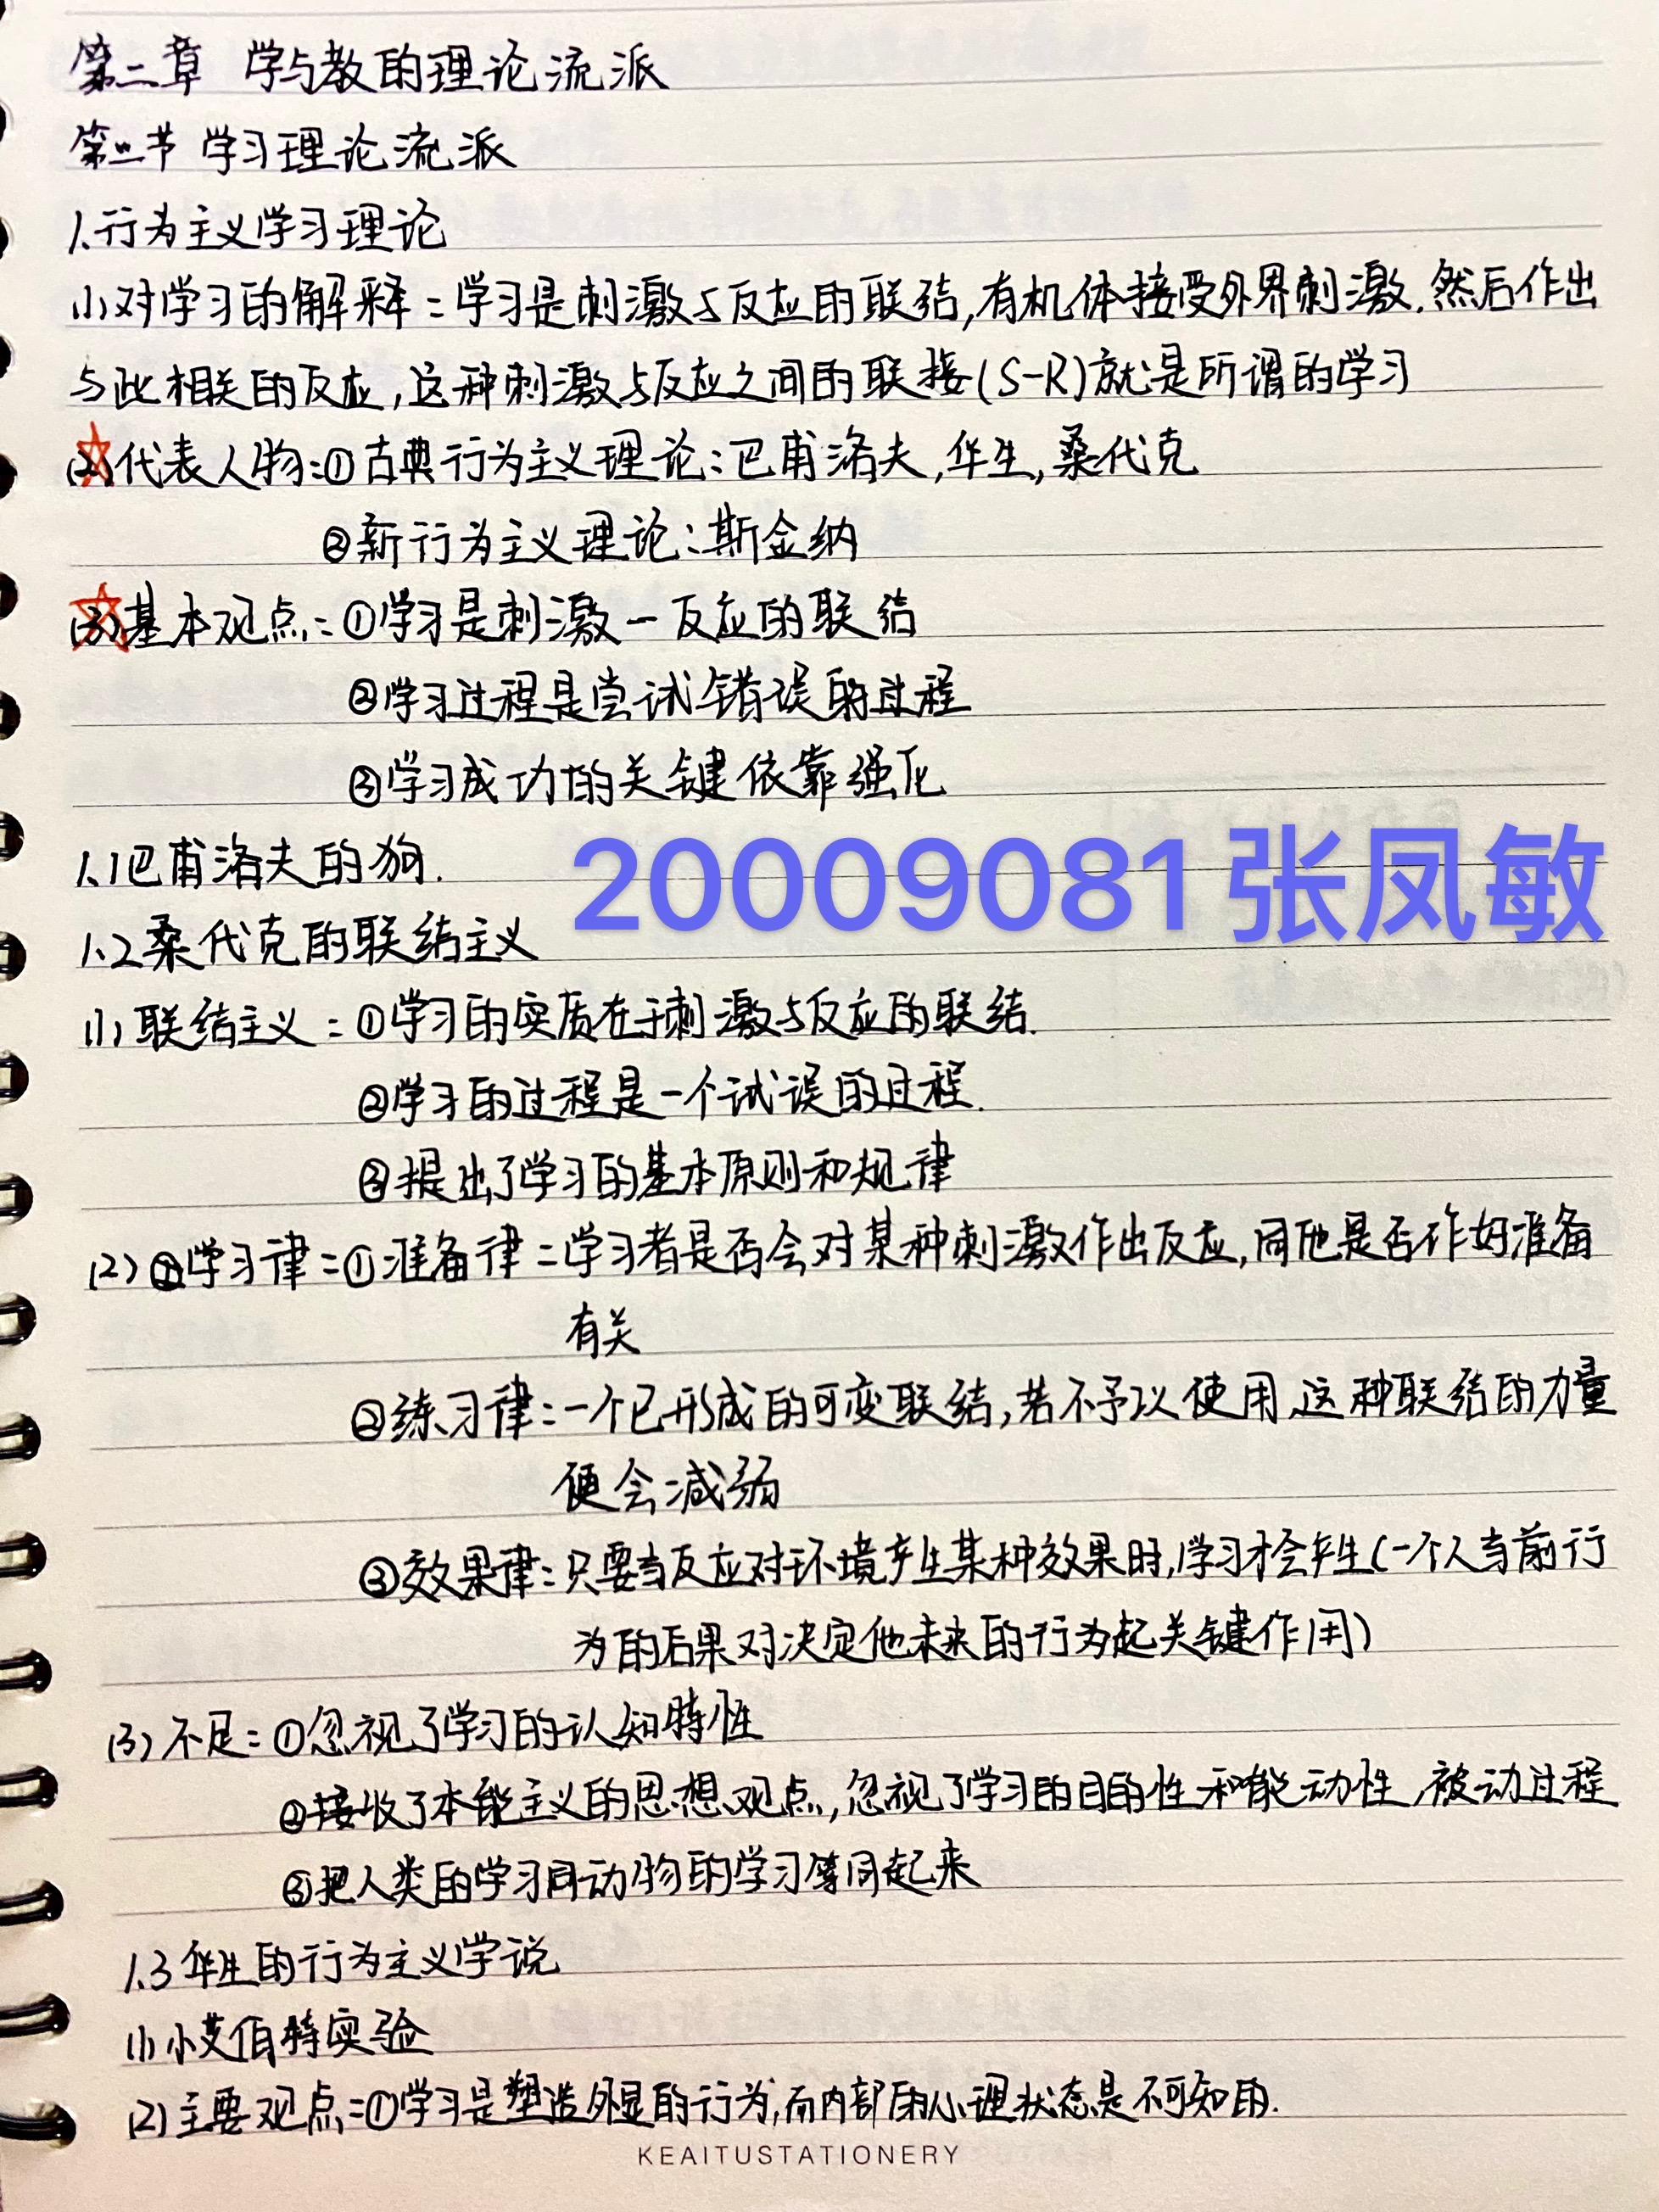 第二章 学与教的理论流派
第一节 学习理论流派
1.行为主义学习理论
(1)对学习的解释:学习是刺激与反应的联结,有机体接受外界刺激.然后作出
与此相关的反应,这种刺激与反应之间的联接(S-R)就是所谓的学习
(2)代表人物:①古典行为主义理论:巴甫洛夫,华生,桑代克
②新行为主义理论:斯金纳
(3)基本观点:①学习是刺激-反应的联结
②学习过程是尝试错误的过程
③学习成功的关键依靠强化
1.1巴甫洛夫的狗.
20009081张凤敏
1.2桑代克的联结主义
(1)联结主义:①学习的实质在于刺激与反应的联结.
②学习的过程是一个试误的过程.
③提出了学习的基本原则和规律
(2)学习律:①准备律:学习者是否会对某种刺激作出反应,同他是否作好准备
有关
②练习律:一个已形成的可变联结,若不予以使用,这种联结的力量
便会减弱
③效果律:只要当反应对环境产生某种效果时,学习才会产生(一个人当前行
为的后果对决定他未来的行为起关键作用)
(3)不足:①忽视了学习的认知特性
②接收了本能主义的思想观点,忽视了学习的目的性和能动性,被动过程
③把人类的学习同动物的学习等同起来
1.3华生的行为主义学说
(1)小艾伯特实验
(2)主要观点:①学习是塑造外显的行为,而内部的心理状态是不可知的.
KEAITUSTATIONERY